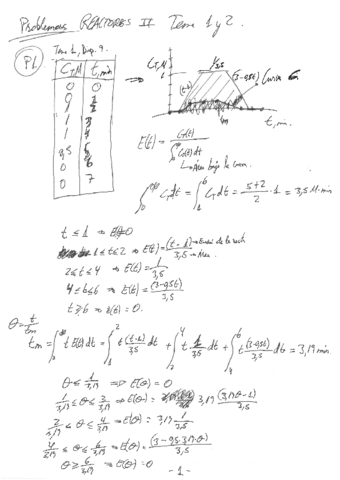 Problemas REACTORES II Tema 1 y 2.
P1
Tema 1, Diap. 9.
C_T, M | t, min
0 | 0
0 | 1
1 | 2
1 | 3
1 | 4
0,5 | 5
0 | 6
0 | 7
C_T, M
1/3,5
(t-1)
(3-0,5t)
Curva
t, min.
E(t) = C_T(t) / ∫_0^∞ C_T(t) dt
→ Área bajo la curva.
∫_0^∞ C_T dt = ∫_1^6 C_T dt = (5+2)/2 · 1 = 3,5 M·min
t ≤ 1 ⇒ E(t)=0
1 ≤ t ≤ 2 ⇒ E(t) = (t-1)/3,5 → de la recta → Área
2 ≤ t ≤ 4 ⇒ E(t) = 1/3,5
4 ≤ t ≤ 6 ⇒ E(t) = (3-0,5t)/3,5
t ≥ 6 ⇒ E(t) = 0.
θ = t/t_m
t_m = ∫_0^∞ t E(t) dt = ∫_1^2 t (t-1)/3,5 dt + ∫_2^4 t 1/3,5 dt + ∫_4^6 t (3-0,5t)/3,5 dt = 3,19 min.
θ ≤ 1/3,19 ⇒ E(θ) = 0
1/3,19 ≤ θ ≤ 2/3,19 ⇒ E(θ) = 3,19 (3,19θ-1)/3,5
2/3,19 ≤ θ ≤ 4/3,19 ⇒ E(θ) = 3,19 1/3,5
4/3,19 ≤ θ ≤ 6/3,19 ⇒ E(θ) = (3-0,5·3,19·θ)/3,5
θ ≥ 6/3,19 ⇒ E(θ) = 0
-1-